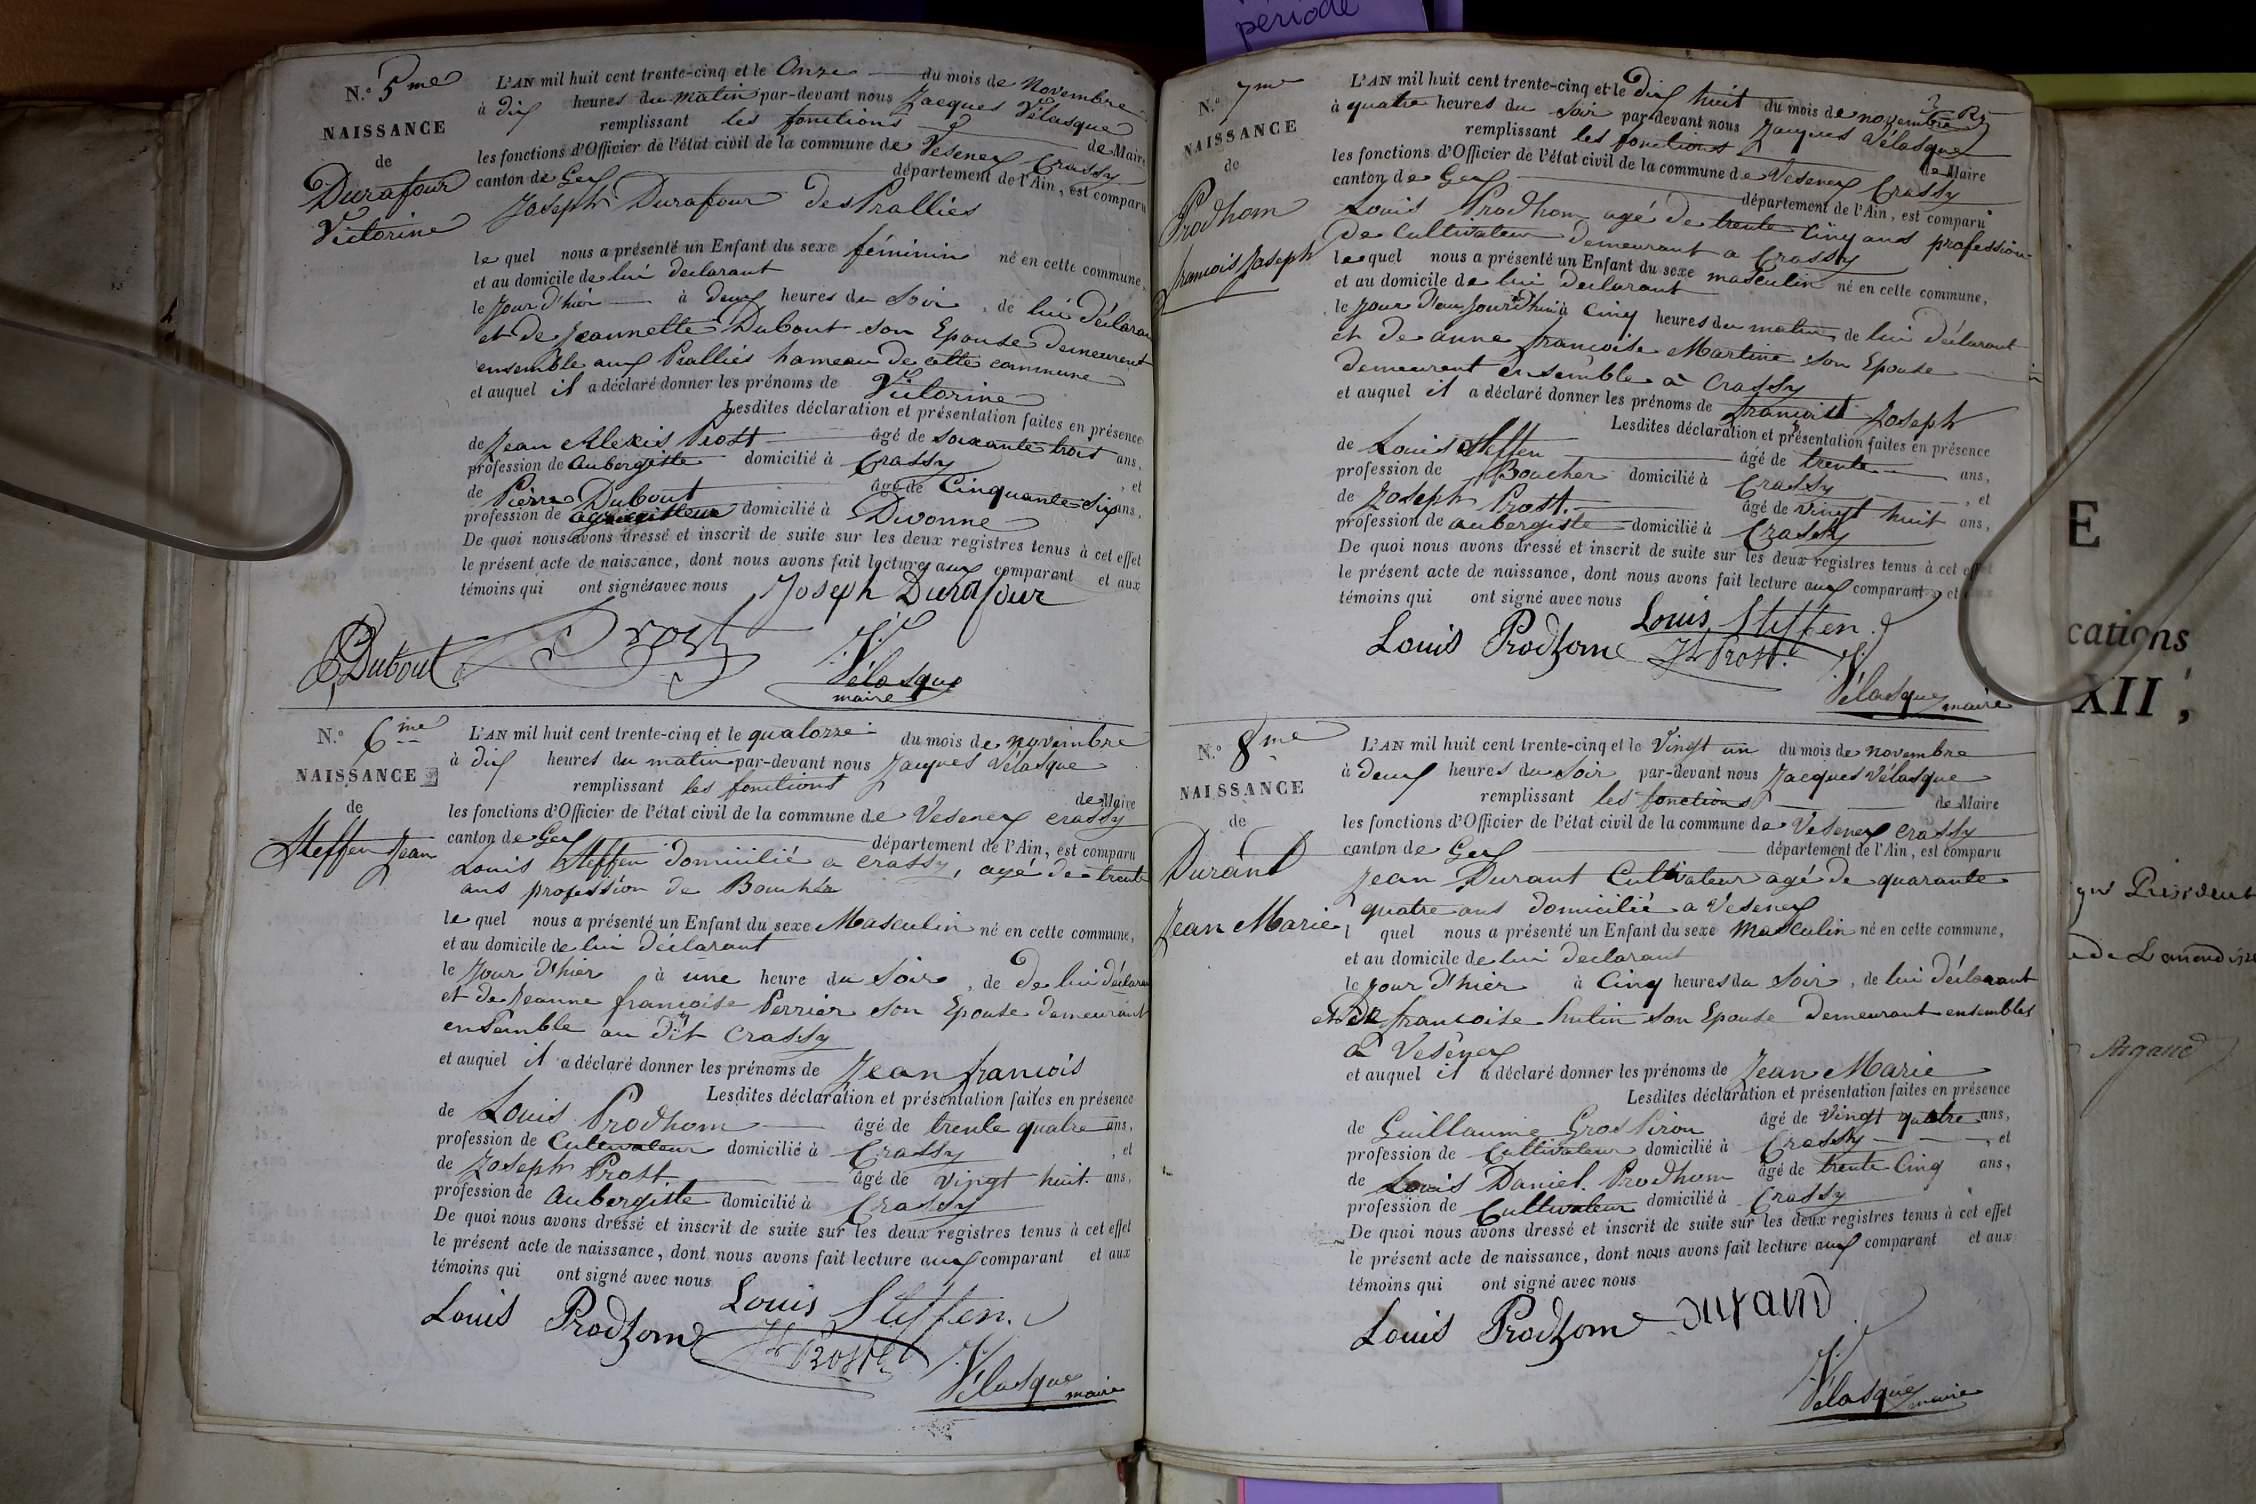 période
N.° 5me
NAISSANCE
de
Durafour
Victorine
L'AN mil huit cent trente-cinq et le Onze du mois de Novembre
à dix heures du matin par-devant nous Jacques Vélasque
remplissant les fonctions de Maire
les fonctions d'Officier de l'état civil de la commune de Vesenex Crassy
canton de Gex département de l'Ain, est comparu
Joseph Durafour des Pralliés
le quel nous a présenté un Enfant du sexe féminin né en cette commune,
et au domicile de lui declarant
le Jour d'hier à deux heures du Soir, de lui déclarant
et de Jeannette Dubout son Epouse demeurent
ensemble aux Pralliés hameau de cette commune
et auquel il a déclaré donner les prénoms de Victorine
Lesdites déclaration et présentation faites en présence
de Jean Alexis Prost âgé de soixante trois ans,
profession de aubergiste domicilié à Crassy, et
de Pierre Dubout âgé de Cinquante Six ans,
profession de domicilié à Divonne
De quoi nous avons dressé et inscrit de suite sur les deux registres tenus à cet effet
le présent acte de naissance, dont nous avons fait lecture aux comparant et aux
témoins qui ont signés avec nous Joseph Durafour
P. Dubout Prost
J. Vélasque
maire
N.° 6me
NAISSANCE
de
Steffen Jean
L'AN mil huit cent trente-cinq et le quatorze du mois de novembre
à dix heures du matin par-devant nous Jacques Vélasque
remplissant les fonctions de Maire
les fonctions d'Officier de l'état civil de la commune de Vesenex crassy
canton de Gex département de l'Ain, est comparu
Louis Steffen domicilié a crassy, agé de trente
ans profession de Boucher
le quel nous a présenté un Enfant du sexe Masculin né en cette commune,
et au domicile de lui déclarant
le Jour d'hier à une heure du Soir, de de lui déclarant
et de Jeanne françoise Perrier son Epouse demeurant
ensemble au dit Crassy
et auquel il a déclaré donner les prénoms de Jean francois
Lesdites déclaration et présentation faites en présence
de Louis Prodhom âgé de trente quatre ans,
profession de Cultivateur domicilié à Crassy, et
de Joseph Prost âgé de vingt huit ans,
profession de Aubergiste domicilié à Crassy
De quoi nous avons dressé et inscrit de suite sur les deux registres tenus à cet effet
le présent acte de naissance, dont nous avons fait lecture aux comparant et aux
témoins qui ont signé avec nous
Louis Steffen.
Louis Prodhom
Jh Prost
J. Vélasque maire
N.° 7me
NAISSANCE
de
Prodhom
francois Joseph
L'AN mil huit cent trente-cinq et le dix huit du mois de novembre
à quatre heures du soir par-devant nous Jacques Vélasque
remplissant les fonctions de Maire
les fonctions d'Officier de l'état civil de la commune de Vesenex Crassy
canton de Gex département de l'Ain, est comparu
Louis Prodhom agé de trente Cinq ans profession
de Cultivateur demeurant a Crassy
le quel nous a présenté un Enfant du sexe masculin né en cette commune,
et au domicile de lui declarant
le Jour d'aujourd'hui à Cinq heures du matin de lui déclarant
et de anne francoise Martine son Epouse
demeurent ensemble à Crassy
et auquel il a déclaré donner les prénoms de francois Joseph
Lesdites déclaration et présentation faites en présence
de Louis Steffen âgé de trente ans,
profession de Boucher domicilié à Crassy, et
de Joseph Prost. âgé de vingt huit ans,
profession de aubergiste domicilié à Crassy
De quoi nous avons dressé et inscrit de suite sur les deux registres tenus à cet effet
le présent acte de naissance, dont nous avons fait lecture aux comparant et aux
témoins qui ont signé avec nous
Louis Steffen
Louis Prodhom Jh Prost.
J. Vélasque maire
N.° 8me
NAISSANCE
de
Durand
Jean Marie
L'AN mil huit cent trente-cinq et le Vingt un du mois de novembre
à deux heures du Soir par-devant nous Jacques Vélasque
remplissant les fonctions de Maire
les fonctions d'Officier de l'état civil de la commune de Vesenex crassy
canton de Gex département de l'Ain, est comparu
Jean Durant Cultivateur agé de quarante
quatre ans domicilié a Vesenex
l quel nous a présenté un Enfant du sexe Masculin né en cette commune,
et au domicile de lui declarant
le jour d'hier à Cinq heures du Soir, de lui déclarant
et de francoise hutin son Epouse demeurant ensembles
a Vesenex
et auquel il a déclaré donner les prénoms de Jean Marie
Lesdites déclaration et présentation faites en présence
de Guillaume Grospiron âgé de Vingt quatre ans,
profession de Cultivateur domicilié à Crassy, et
de Louis Daniel Prodhom âgé de trente Cinq ans,
profession de Cultivateur domicilié à Crassy
De quoi nous avons dressé et inscrit de suite sur les deux registres tenus à cet effet
le présent acte de naissance, dont nous avons fait lecture aux comparant et aux
témoins qui ont signé avec nous
Louis Prodhom durand
J. Vélasque maire
E
cations
XII,
Président